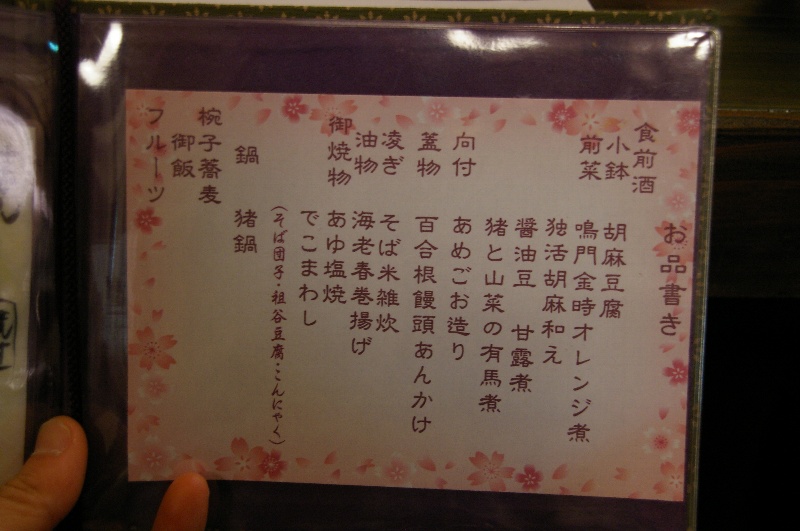 お品書き
食前酒
小鉢 胡麻豆腐
前菜 鳴門金時オレンジ煮
独活胡麻和え
醤油豆 甘露煮
猪と山菜の有馬煮
向付 あめごお造り
蓋物 百合根饅頭あんかけ
凌ぎ そば米雑炊
油物 海老春巻揚げ
御焼物 あゆ塩焼
でこまわし
(そば団子・祖谷豆腐・こんにゃく)
鍋 猪鍋
椀子蕎麦
御飯
フルーツ